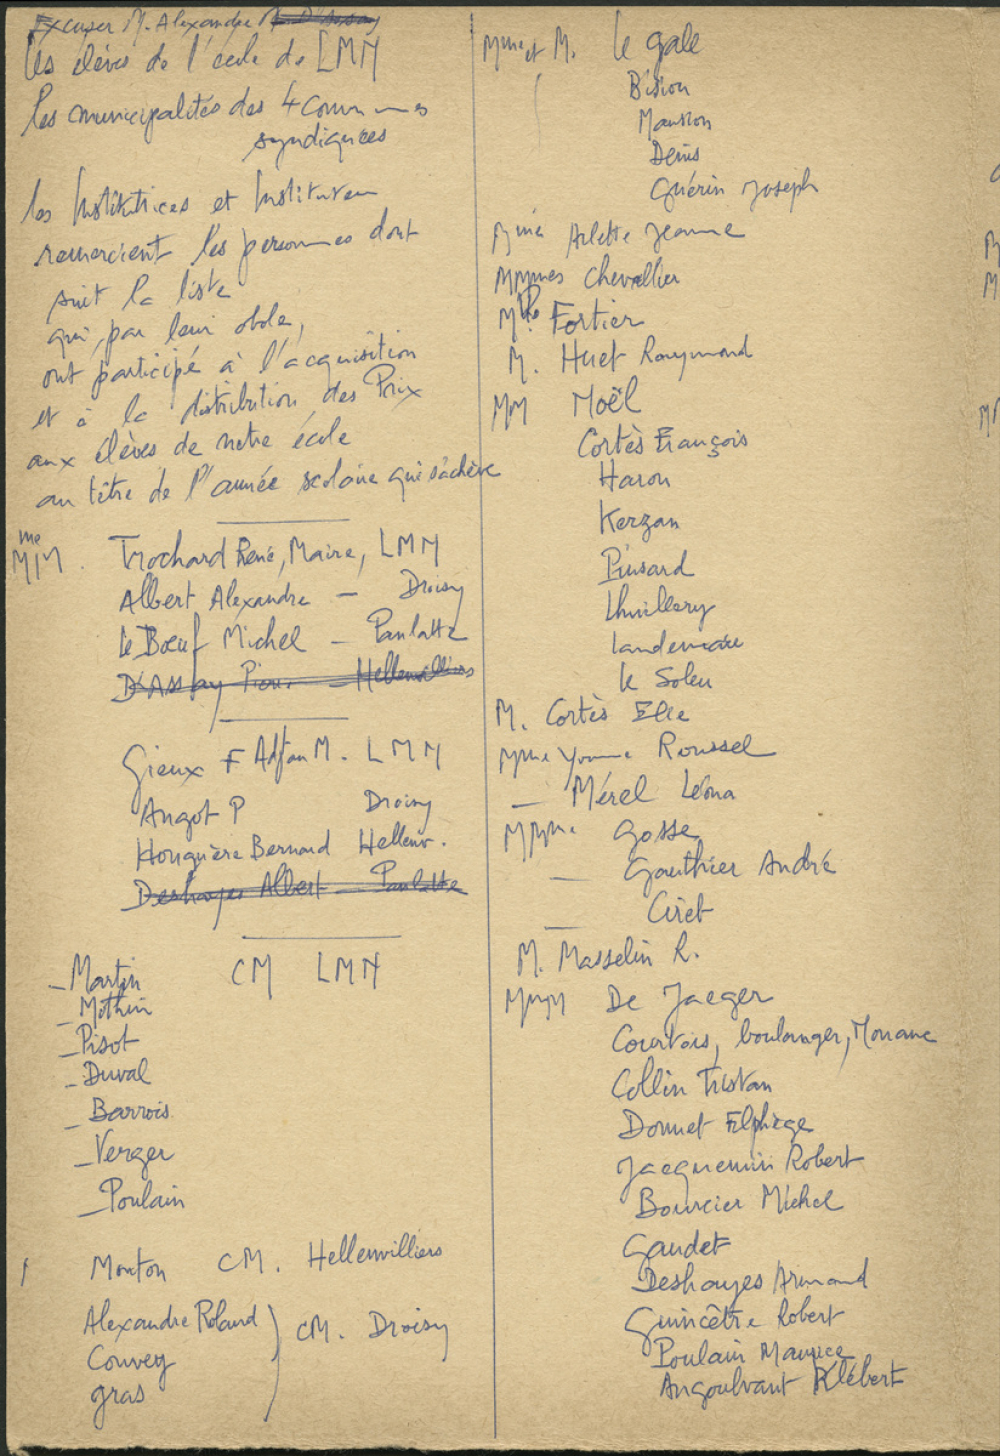 Excuser M. Alexandre M. D'Assay
Les élèves de l'école de LMM
Les municipalités des 4 Communes
syndiquées
les Institutrices et Instituteur
remercient les personnes dont
suit la liste
qui, par leur obole,
ont participé à l'acquisition
et à la distribution des Prix
aux élèves de notre école
au titre de l'année scolaire qui s'achève
me
MM. Trochard René, Maire, LMM
Albert Alexandre — Droisy
Le Bœuf Michel — Panlatte
D'Assay Pierre — Hellenvilliers
Gieux F Adj au M. LMM
Angot P Droisy
Houguère Bernard Hellenv.
Deshayes Albert — Panlatte
- Martin CM LMM
- Mithin
- Pisot
- Duval
- Barrois
- Verger
- Poulain
Mouton CM. Hellenvilliers
Alexandre Roland
Convey CM. Droisy
gras
Mme et M. Le gale
Bision
Mansion
Denis
Guérin Joseph
Mme Arlette Jeanne
MMmes Chevallier
Mlle Fortier
M. Huet Raymond
MM Noël
Cortès François
Haron
Kerzan
Pinsard
Lhuillery
Landemare
Le Soleu
M. Cortès Elie
Mme Yvonne Roussel
— Mérel Léona
MMme Gosse
— Gauthier André
— Ciret
M. Masselin R.
MMM De Jaeger
Courtois, boulanger,
Collin Tristan
Donnet Elphège
Jacquemin Robert
Bourcier Michel
Gaudet
Deshayes Armand
Guincêtre Robert
Poulain Maurice
Angoulvant Klébert